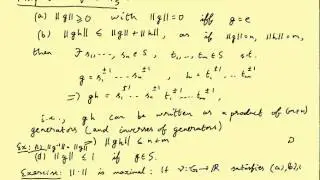 (a) ||g|| ≥ 0 with ||g|| = 0 iff g = e
(b) ||gh|| ≤ ||g|| + ||h||, as if ||g|| = n, ||h|| = m,
then ∃ s₁, ..., sₙ ∈ S, t₁, ..., tₘ ∈ S s.t.
g = s₁^±1 ... sₙ^±1, h = t₁^±1 ... tₘ^±1
⇒ gh = s₁^±1 ... sₙ^±1 t₁^±1 ... tₘ^±1
i.e., gh can be written as a product of (m+n)
generators (and inverses of generators)
||g⁻¹|| = ||g|| ⇒ ||gh|| ≤ n+m □
(d) ||g|| ≤ 1 if g ∈ S.
Exercise: ||·|| is maximal: If ν: G → ℝ satisfies (a), (b),